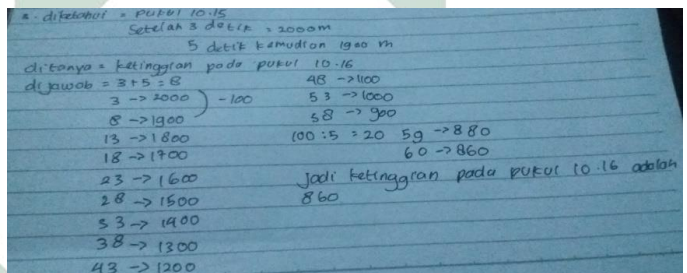 a. diketahui = pukul 10.15
Setelah 3 detik = 2000 m
5 detik kemudian 1900 m
ditanya = ketinggian pada pukul 10.16
dijawab = 3+5 = 8
3 -> 2000
8 -> 1900
) - 100
13 -> 1800
18 -> 1700
23 -> 1600
28 -> 1500
33 -> 1400
38 -> 1300
43 -> 1200
48 -> 1100
53 -> 1000
58 -> 900
100 : 5 = 20 59 -> 880
60 -> 860
Jadi ketinggian pada pukul 10.16 adalah
860